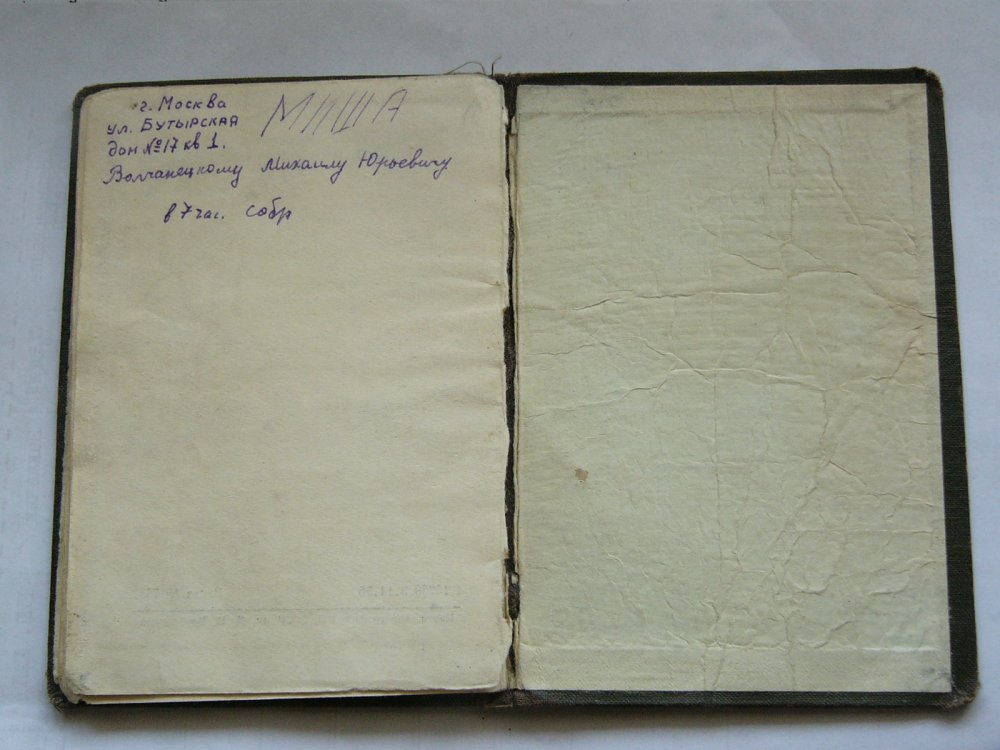 г. Москва
МИША
ул. БУТЫРСКАЯ
дом №17 кв 1.
Волчанецкому Михаилу Юрьевичу
в 7 час. собр